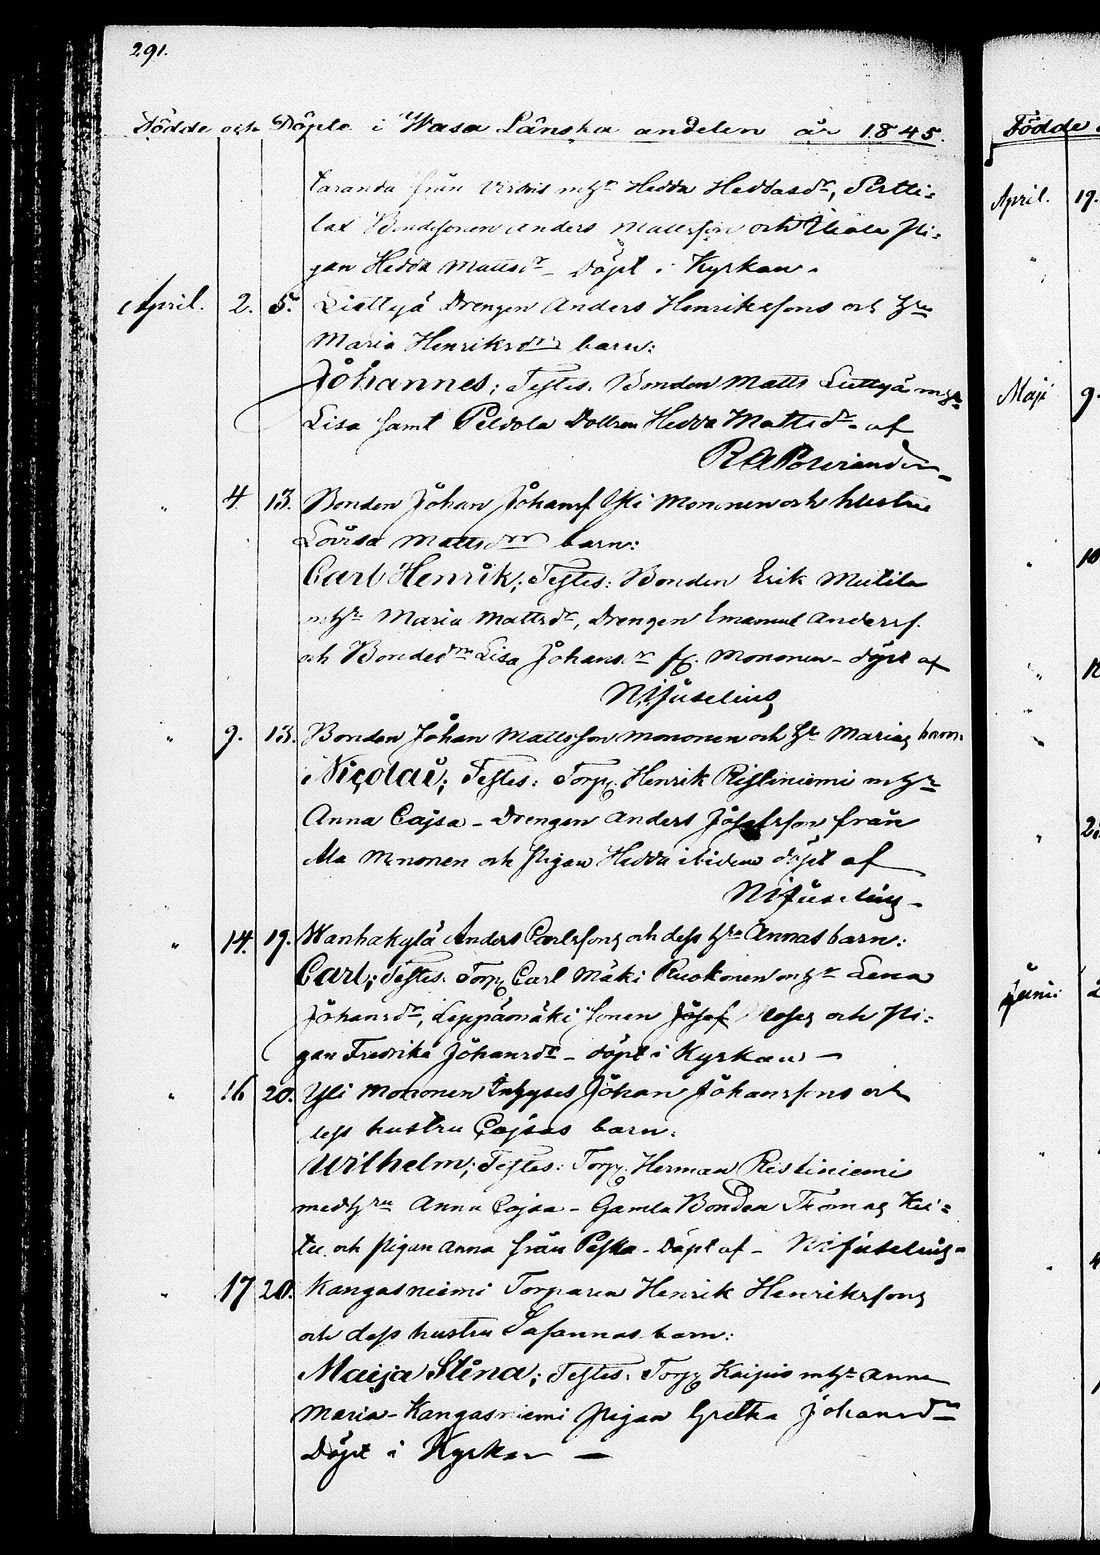 291.
Födde och Döpte i Wasa Länska andelen år 1845.
från Virdois mhr Hedda Heddasdr, Pertti-
lax Bondesonen Anders Mattsson och Pi-
gan Hedda Mattsdr döpt i Kyrkan.
April. 2. 5. Drengen Anders Henrikssons och hru
Maria Henriksdrs barn:
Johannes; Testes. Bonden Matts mhr
Lisa samt Peldola Dottren Hedda Mattsdr. af
" 4. 13. Bonden Johan Johanss Yli Mononen och hustru
Lovisa Mattsdrs barn:
Carl Henrik; Testes: Bonden Erik Mutila
mhr Maria Mattsdr, Drengen Emanuel Anderss.
och Bondedrn Lisa Johansdr fr. Mononen - döpt af
N. Juselius
" 9. 13. Bonden Johan Mattsson Mononen och hr Marias barn:
Nicolai; Testes: Torp. Henrik Ristiniemi mhr
Anna Cajsa - Drengen Anders Josefsson från
Ala Mononen och Pigan Hedda ibidem döpt af
N. Juselius -
" 14. 19. Wanhakylä Anders Carlssons och dess hru Annas barn:
Carl; Testes. Torp. Carl Mäki Ruokonen mhr Lena
Johansdr, Leppämäki Sonen Josef och Pi-
gan Fredrika Johansdr - döpt i Kyrkan -
" 16 20. Yli Mononen Inhyses Johan Johanssons och
dess hustru Cajsas barn:
Wilhelm; Testes: Torp. Herman Ristiniemi
med hru Anna Cajsa - Gamla Bonden Thomas Kei-
tu och Pigan Anna från Peska - Döpt af - N. Juselius -
" 17 20. Kangasniemi Torparen Henrik Henrikssons
och dess hustru Sasannas barn:
Maija Stina; Testes: Torp. mhr Anna
Maria - Kangasniemi Pigan Gretha Johansdr
Döpt i Kyrkan -
Födde
April. 19.
Maji 9.
10
Juni